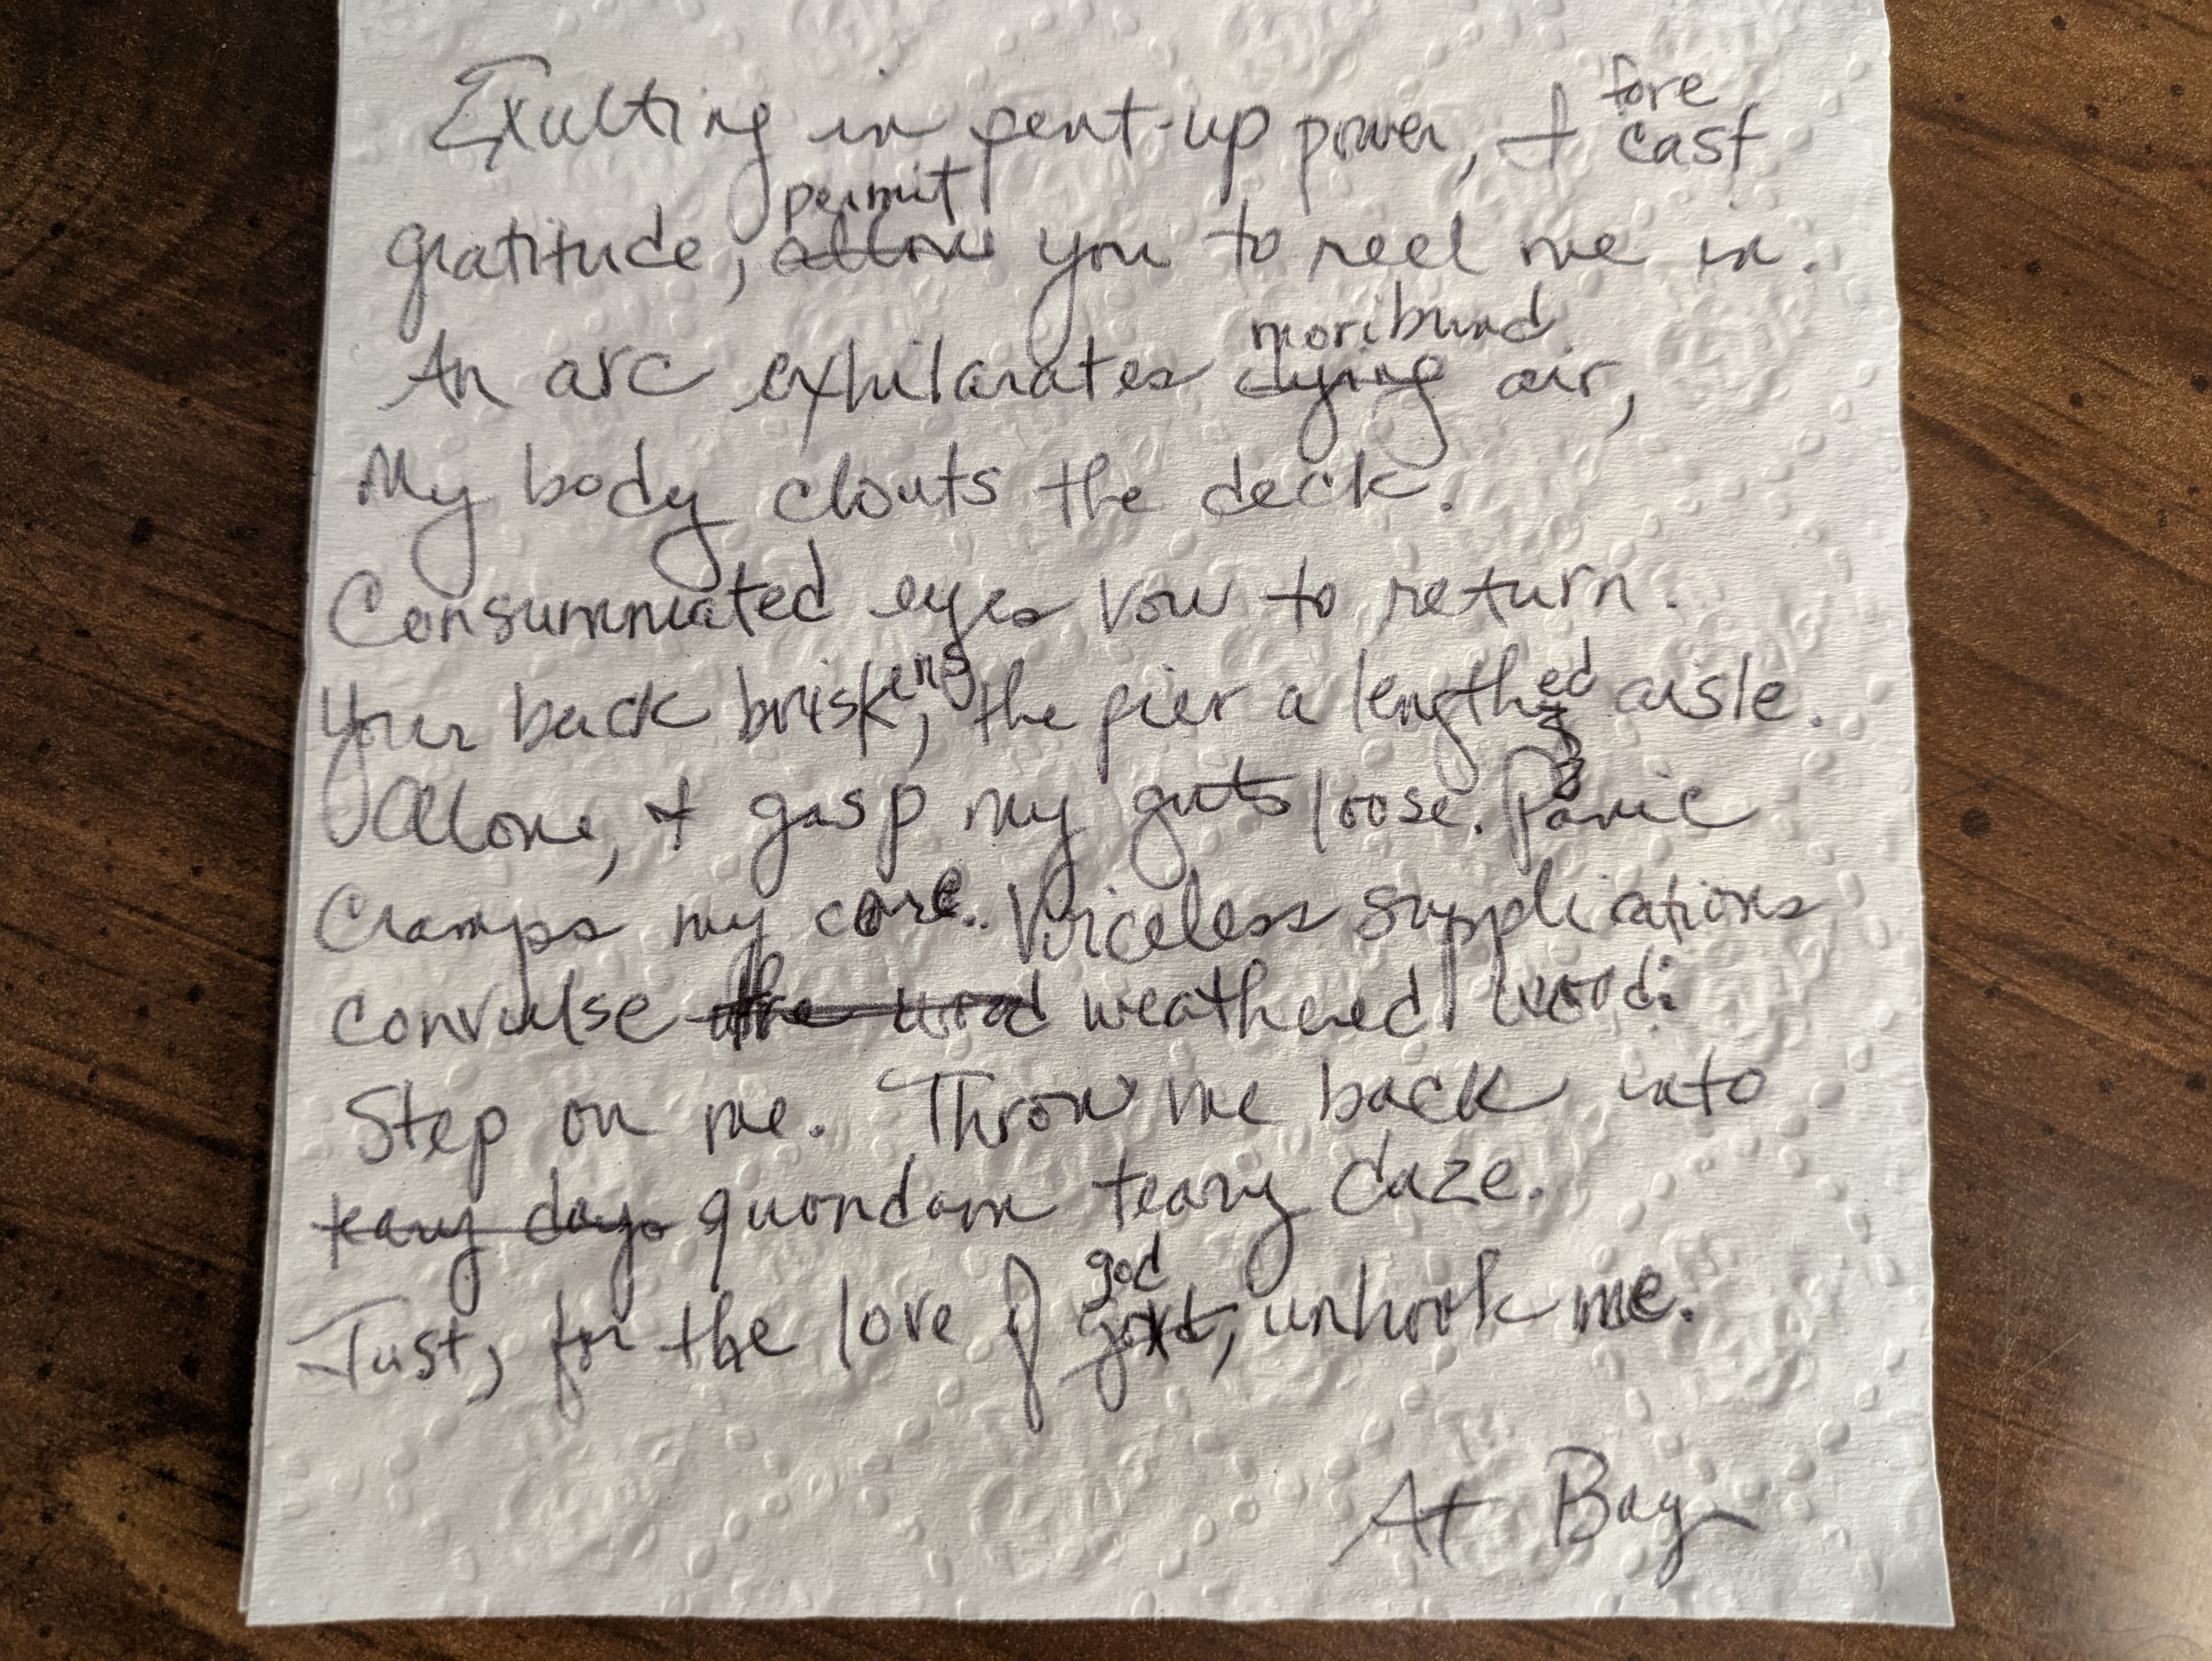 fore
Exulting in pent-up power, I cast
permit
gratitude, allow you to reel me in.
moribund
An arc exhilarates dying air,
My body clouts the deck.
Consummated eyes vow to return.
Your back briskens, the pier a lengthed aisle.
Alone, I gasp my guts loose. Panic
Cramps my core. Voiceless supplications
convulse the wood weathered wood:
Step on me. Throw me back into
teary days quondam teary daze.
god
Just, for the love of unhook me.
At Bay